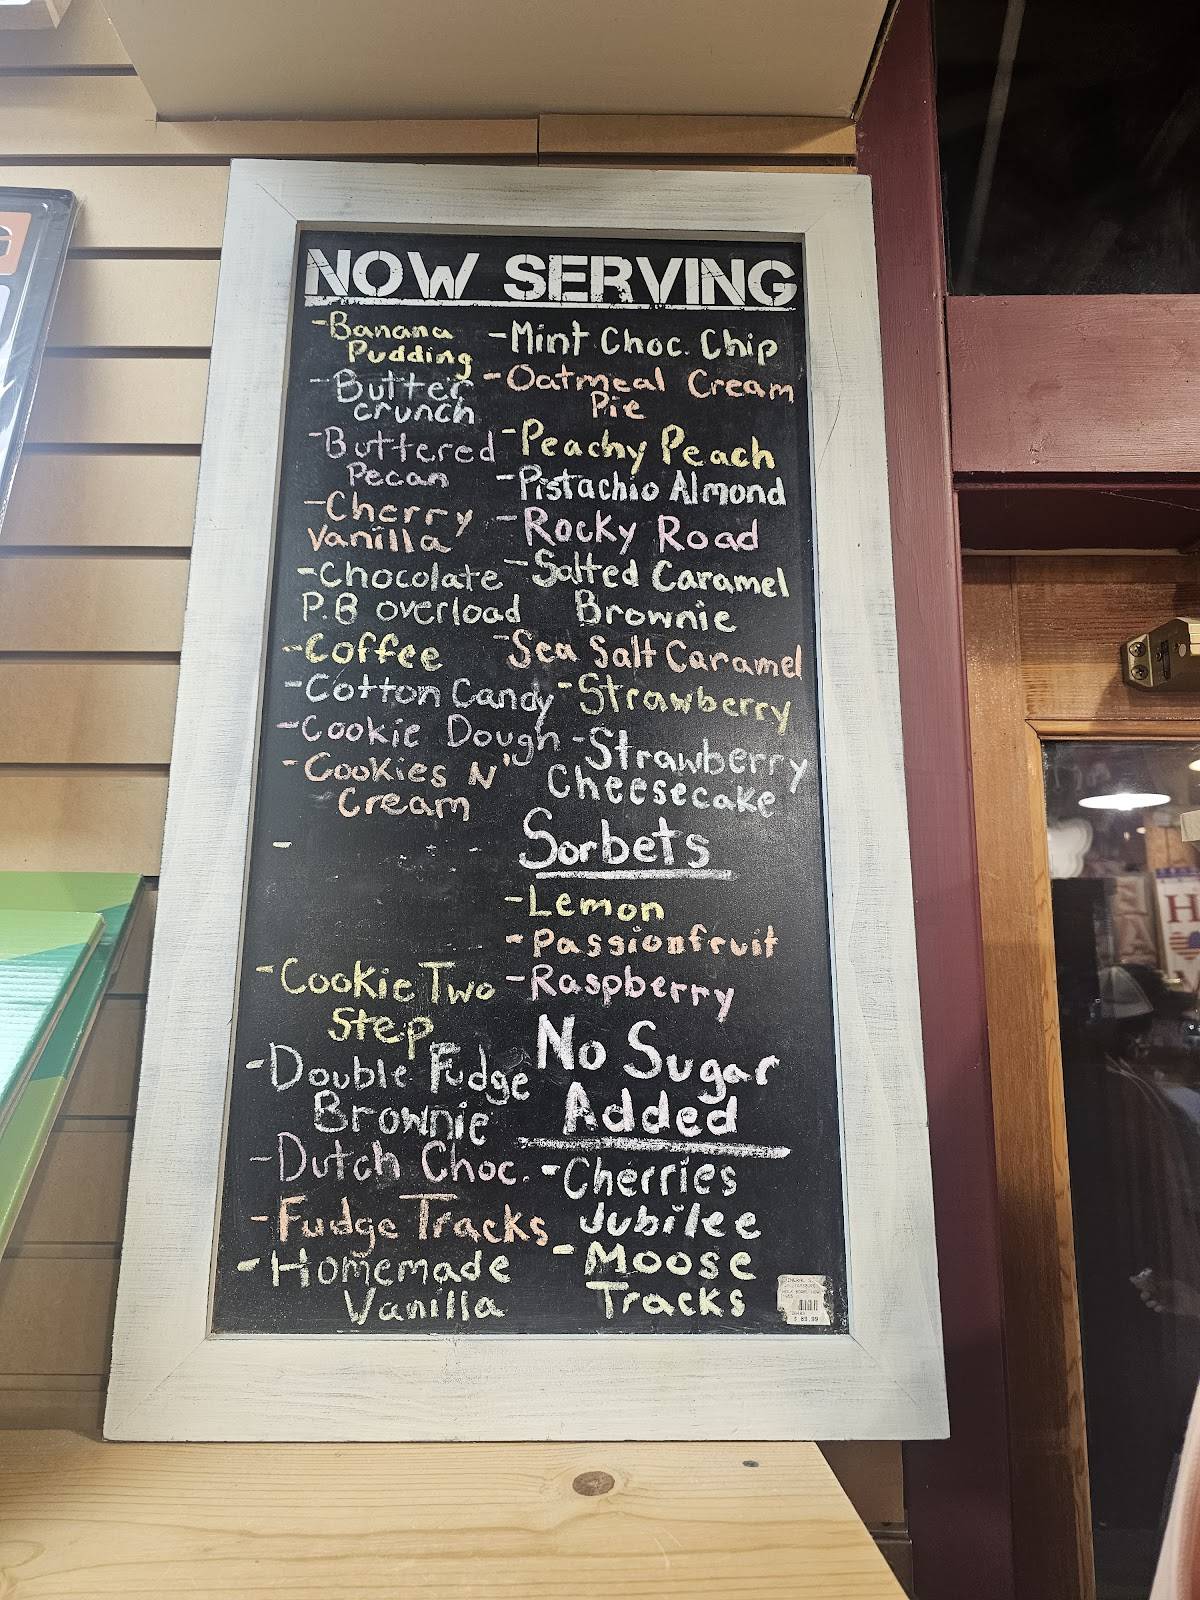 NOW SERVING
-Banana
Pudding
-Butter
crunch
-Buttered
Pecan
-Cherry
Vanilla
-Chocolate
P.B overload
-Coffee
-Cotton Candy
-Cookie Dough
-Cookies N'
Cream
-
-Cookie Two
Step
-Double Fudge
Brownie
-Dutch Choc.
-Fudge Tracks
-Homemade
Vanilla
-Mint Choc. Chip
-Oatmeal Cream
Pie
-Peachy Peach
-Pistachio Almond
-Rocky Road
-Salted Caramel
Brownie
-Sea Salt Caramel
-Strawberry
-Strawberry
Cheesecake
Sorbets
-Lemon
-Passionfruit
-Raspberry
No Sugar
Added
-Cherries
Jubilee
-Moose
Tracks